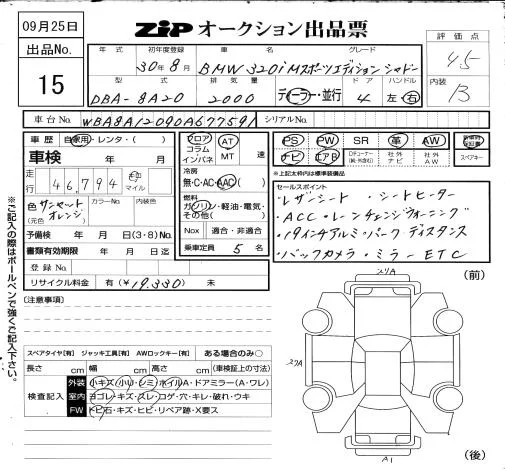 09月25日
ZIP オークション出品票
出品No.
15
評価点
4.5
内装
B
年式 初年度登録 車名 グレード
30年8月 BMW 320i Mスポーツエディションシャドー
型式 排気量 ドア ハンドル
DBA-8A20 2000 ディーラー・並行 4 左・右
車台No. WBA8A12090A677591 シリアルNo.
車歴 自家用・レンタ・( )
車検 年 月
走行 46,794 km マイル
色(元色) サンセットオレンジ カラーNo. 内装色
予備検 年 月 日(3・8)No.
書類有効期限 年 月 日迄
登録No.
リサイクル料金 有(¥19,330) 未
フロア コラム インパネ AT MT 速
冷房
無・C・AC・AAC
燃料
ガソリン・軽油・電気・その他( )
Nox 適合・非適合
乗車定員 5 名
PS PW SR 革 AW
ナビ エアB 社外ナビ 社外AW スペアキー
※上記太枠内は標準装備品
セールスポイント
・レザーシート ・シートヒーター
・ACC・レーンチェンジウォーニング
・19インチアルミ・パークディスタンス
・バックカメラ・ミラーETC
※ご記入の際はボールペンで強くご記入下さい。
(注意事項)
スペアタイヤ[有] ジャッキ工具[有] AWロックキー[有] ある場合のみ○
長さ cm 幅 cm 高さ cm (車検証上の寸法)
検査記入
外装 小キズ(小U・シミ)ホイルA・ドアミラー(A・ワレ)
室内 ヨゴレ・キズ・スレ・コゲ・穴・キレ・破れ・ウキ
FW トビ石・キズ・ヒビ・リペア跡・X要ス
(前)
(後)
A1